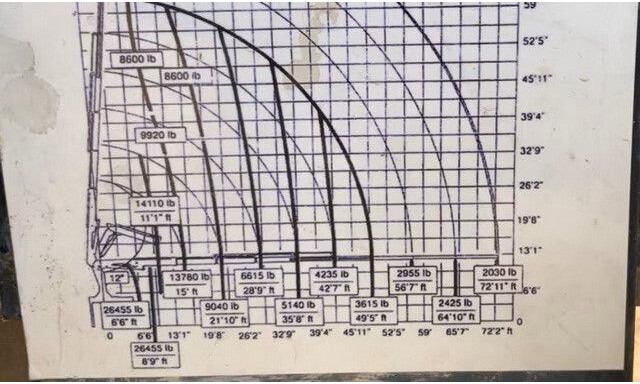 59
52'5"
8600 lb
8600 lb
45'11"
39'4"
9920 lb
32'9"
26'2"
14110 lb
11'1" ft
19'8"
13'1"
12"
13780 lb
15' ft
6615 lb
28'9" ft
4235 lb
42'7" ft
2955 lb
56'7" ft
2030 lb
72'11" ft
6'6"
26455 lb
6'6" ft
9040 lb
21'10" ft
5140 lb
35'8" ft
3615 lb
49'5" ft
2425 lb
64'10" ft
0
0 6'6" 13'1" 19'8" 26'2" 32'9" 39'4" 45'11" 52'5" 59' 65'7" 72'2" ft
26455 lb
8'9" ft